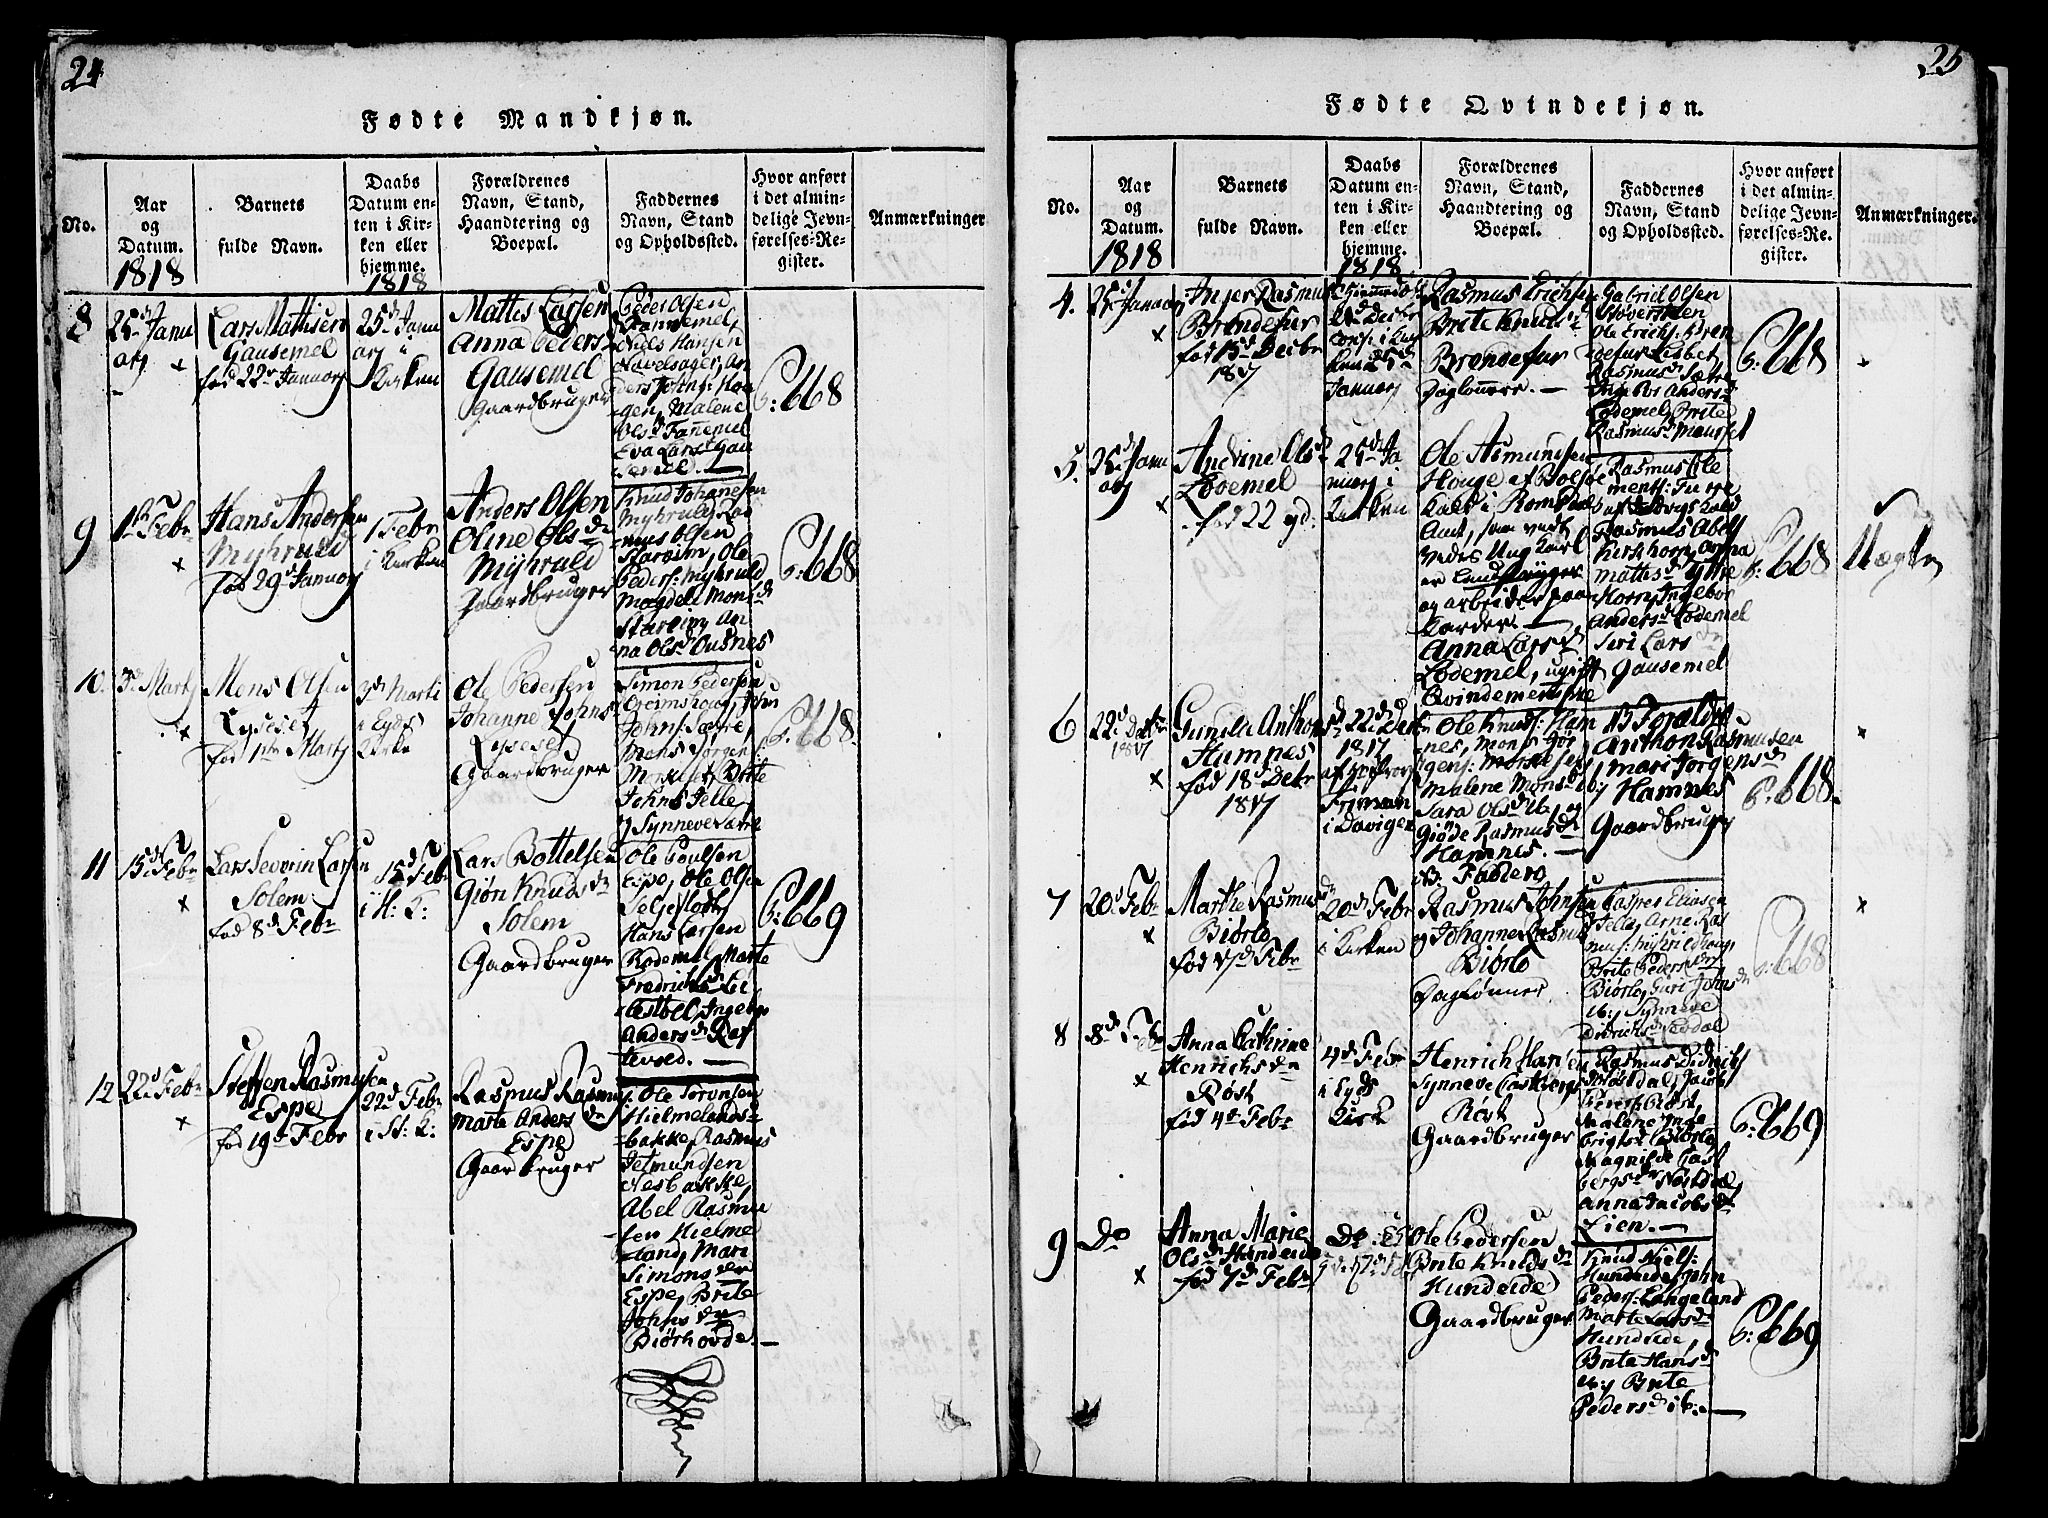 24
Fødte Mandkjøn.
No.
Aar
og
Datum.
1818
Barnets
fulde Navn.
Daabs
Datum en-
ten i Kir-
ken eller
hjemme.
1818
Forældrenes
Navn, Stand,
Haandtering og
Boepæl.
Faddernes
Navn, Stand
og Opholdssted.
Hvor anført
i det almin-
delige Jevn-
førelses-Re-
gister.
Anmærkninger
8
25d Janu
arj
Lars Mathisen
Gausemel
fød 22d Januarj
25d Janu
arj i
Kirken
Mattis Larsen
Anna Peders
Gausemel
Gaardbruger
Peder Olsen
Niels Hansen
Navelsager, An
ders Johns: Hou
gen, Malene
Olsd Fannemel
Eva Larsd Gau
semel.
668
9
1te Febr
Hans Andersen
Myhruld
fød 29d Januarj
1 Febr
i Kirken
Anders Olsen
Oline Olsdr
Myhruld
Gaardbruger
Knud Johanesen
Myhruld, Ras
mus Olsen
Starheim, Ole
Peders: Myhruld
Magdeli Monsd
Starheim, An
na Olsd Ousnes
668
10.
3d Martj
Mons Olsen
Lyseset
fød 1te Martj
3d Marti
i Eyds
Kirke
Ole Pedersen
Johanne Johns
Lyseset
Gaardbruger
Simon Pedersen
Johns: Sætre,
Mons Jørgens:
Brite
Johns Jelle
og Synneve Sætre
668.
11
15d Febr
Lars Severin Larsen
Solem
fød 8d Febr
15d Febr
i H: K:
Lars Bottelsen
Giøn Knudsdr
Solem
Gaardbruger
Ole Poulsen
Espe, Ole Olsen
Hans Larsen
Rodemel, Marte
Fredrichsd Lei
vestøel, Ingebor
Andersd Ref
tevsed.
669
12
22d Febr
Steffen Rasmusen
Espe
fød 19d Febr
22d Febr
i St: K:
Rasmus Rasmus
Marte Andersdr
Espe
Gaardbruger
Ole Torunsen
Hielmelands-
bakke, Rasmus
Jetmundsen
Nesbakke,
Abel Rasmu
sen Hielme
land, Mari
Simonsdr
Espe, Brite
Johnsdr
Biørhovde.
25
Fødte Qvindekjøn.
No.
Aar
og
Datum.
1818
Barnets
fulde Navn.
Daabs
Datum en-
ten i Kir-
ken eller
hjemme.
1818
Forældrenes
Navn, Stand,
Haandtering og
Boepæl.
Faddernes
Navn, Stand
og Opholdssted.
Hvor anført
i det almin-
delige Jevn-
førelses-Re-
gister.
Anmærkninger.
4.
25d Januarj
Inger Rasmus
Brendefur
fød 15d Decbr
1817
Hiemmedøbt
Decbr
conf: i Kir
ken 25d
Januarj
Rasmus Erichsen
Brite Knudsdr
Brendefur
Daglønnere.
Gabriel Olsen
Ole Erichs: Bren
defur, Lisbet
Rasmusd Sætre
Ingebor Andersd
Lødemel, Brite
Rasmusd Maurset
668
5.
25d Janu
arj
Andrine Olsd
Lødemel
fød 22 yd:
25d Ja
nuarj i
Kirken
Ole Asmundsen
Houge af Bolsøe
Kald i Romsdals
Amt, som vedb
Ung Karl
er Landstryger
og arbeider paa
Karder
Anna Larsd
Lødemel, ugift
Qvindemenniske
Rasmus Kle
af Indvigs Kald
Rasmus Abels
Kirkhorn, Anna
Mattisd Ytre
Horn, Ingebor
Andersd Lødemel
Siri Larsdr
Gausemel
668
Uægte
6
22d Decbr
1817
Gunild Anthonsd
Hamnes
fød 18d Decbr
1817
22d Decbr
1817
af Hr Prov
Friman
i Daviger
Ole Knuds: Ham
nes, Mons Jør
gens: Morkeset
Malene Monsd ib
Sara Olsd ib, og
Giøde Rasmusdr
Hamnes.
NB: Faddere
NB Forældre
Anthon Rasmusen
Mari Jørgensd
Hamnes
Gaardbruger
668.
7
20d Febr
Marthe Rasmusdr
Biørlo
fød 17d Febr
20d Febr
i Kirken
Rasmus Johnsen
og Johanne Rasmus
Biørlo
Daglønner
Casper Elinsen
Stelle, Arne Ras
mus: Myhrildhoug
Brite Pedersdr
Biørlo, Guri Johnsdr
ib, Synneve
Didrichsd Nesdal
668
8
8d Febr
Anna Cathrine
Henrichsdr
Røst
fød 4de Febr
4d Febr
i Eyds
Kirk
Henrich Hansen
Synneve Castbergs
Røst
Gaardbruger
Rasmus Didrichs
Nøstdal, Jacob
Iversen Røst,
Malene Inge
brigtsd Biørlo
Magnilde Cast
bergsdr Nøstdal,
Anna Jacobsd
Lien.
669
9
Do
Anna Marie
Olsd Hundeide
fød 7d Febr
Do
Ole Pedersen
Brite Knudsdr
Hundeide
Gaardbruger
Knud Niels:
Hundeide, John
Peders: Langeland
Marte Larsd
Hundeide,
Brite Hansd
ib, Brite
Pedersd ib.
669